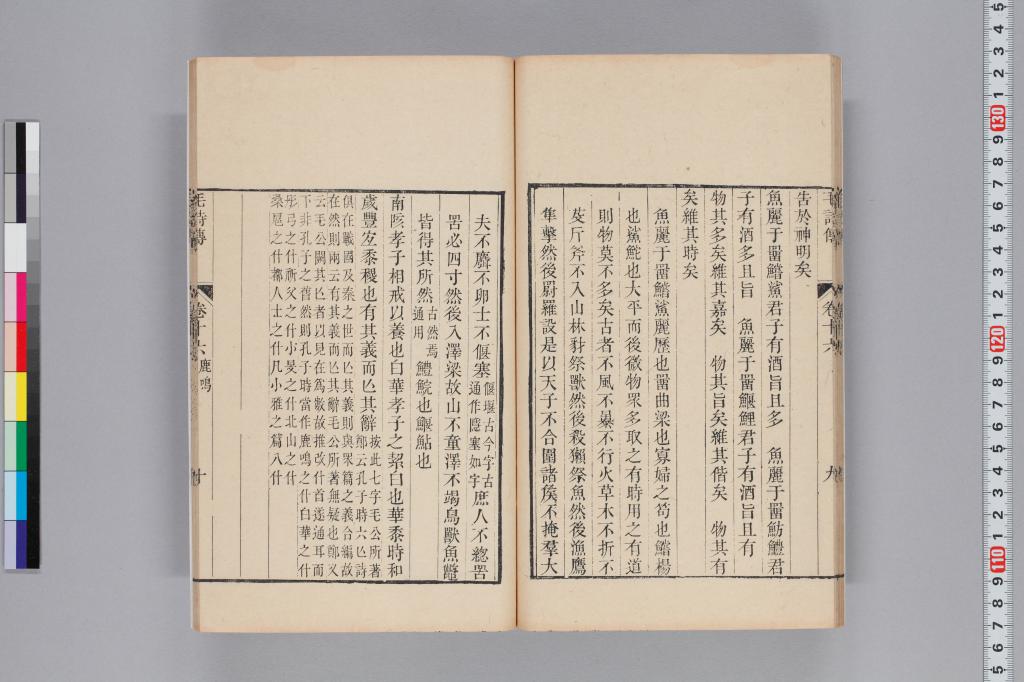 告於神明矣
魚麗于罶鱨鯊君子有酒旨且多　魚麗于罶魴鱧君
子有酒多且旨　魚麗于罶鰋鯉君子有酒旨且有
物其多矣維其嘉矣　物其旨矣維其偕矣　物其有
矣維其時矣
魚麗于罶鱨鯊麗歷也罶曲梁也寡婦之笱也鱨楊
也鯊鮀也大平而後微物眾多取之有時用之有道
則物莫不多矣古者不風不暴不行火草木不折不
芟斤斧不入山林豺祭獸然後殺獺祭魚然後漁鷹
隼擊然後罻羅設是以天子不合圍諸矦不掩羣大
毛詩傳
卷十六
九
夫不麛不卵士不偃塞
偃堰古今字古
通作隱塞如字
庶人不緫罟
罟必四寸然後入澤梁故山不童澤不竭鳥獸魚鼈
皆得其所然
古然焉
通用
鱧鯇也鰋鮎也
南陔孝子相戒以養也白華孝子之絜白也華黍時和
歲豐宜黍稷也有其義而亾其辭
按此七字毛公所著
鄭云孔子時六亾詩
俱在戰國及秦之世而亾其義則與眾篇之義合編故
在然則兩云有其義而亾其辭毛公所著無疑也鄭又
云毛公闕其亾者以見在爲數故推改什首遂通耳而
下非孔子之舊然則孔子時當作鹿鳴之什白華之什
彤弓之什祈父之什小旻之什北山之什
桑扈之什都人士之什凡小雅之篇八什
毛詩傳
卷十六
鹿鳴
十